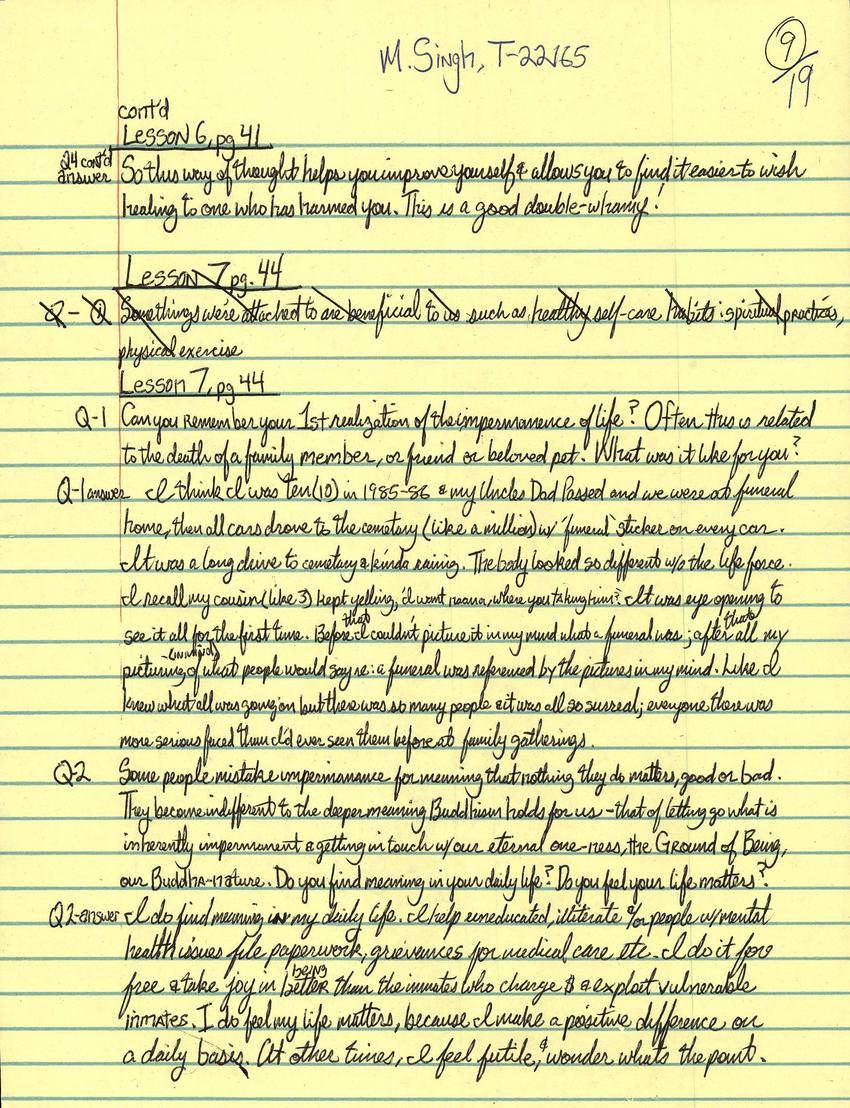 M. Singh, T-22165
9/19
cont'd
Lesson 6, pg 41
Q4 cont'd answer So this way of thought helps you improve yourself & allows you to find it easier to wish
healing to one who has harmed you. This is a good double-whamy!
Lesson 7 pg. 44
Q - Q Some things we're attached to are beneficial to us such as healthy self-care habits: spiritual practices,
physical exercise
Lesson 7, pg 44
Q-1 Can you remember your 1st realization of the impermanence of life? Often this is related
to the death of a family member, or friend or beloved pet. What was it like for you?
Q-1 answer I think I was ten (10) in 1985-86 & my Uncles Dad Passed and we were at funeral
home, then all cars drove to the cemetary (like a million) w/ 'funeral' sticker on every car.
It was a long drive to cemetary & kinda raining. The body looked so different w/o the life force.
I recall my cousin (like 3) kept yelling, 'I want nana, where you taking him?' It was eye opening to
see it all for the first time. Before that I couldn't picture it in my mind what a funeral was; after that all my
picturing (in mind) of what people would say re: a funeral was referenced by the pictures in my mind. Like I
knew what all was going on but there was so many people & it was all so surreal; everyone there was
more serious faced than I'd ever seen them before at family gatherings.
Q-2 Some people mistake impermanance for meaning that nothing they do matters, good or bad.
They become indifferent to the deeper meaning Buddhism holds for us - that of letting go what is
inherently impermanent & getting in touch w/ our eternal one-ness, the Ground of Being,
our Buddha-nature. Do you find meaning in your daily life? Do you feel your life matters?
Q2-answer I do find meaning in my daily life. I help uneducated, illiterate &/or people w/ mental
health issues file paperwork, grievances for medical care etc. I do it for
free & take joy in being better than the inmates who charge $ & exploit vulnerable
inmates. I do feel my life matters, because I make a positive difference on
a daily basis. At other times, I feel futile, & wonder whats the point.